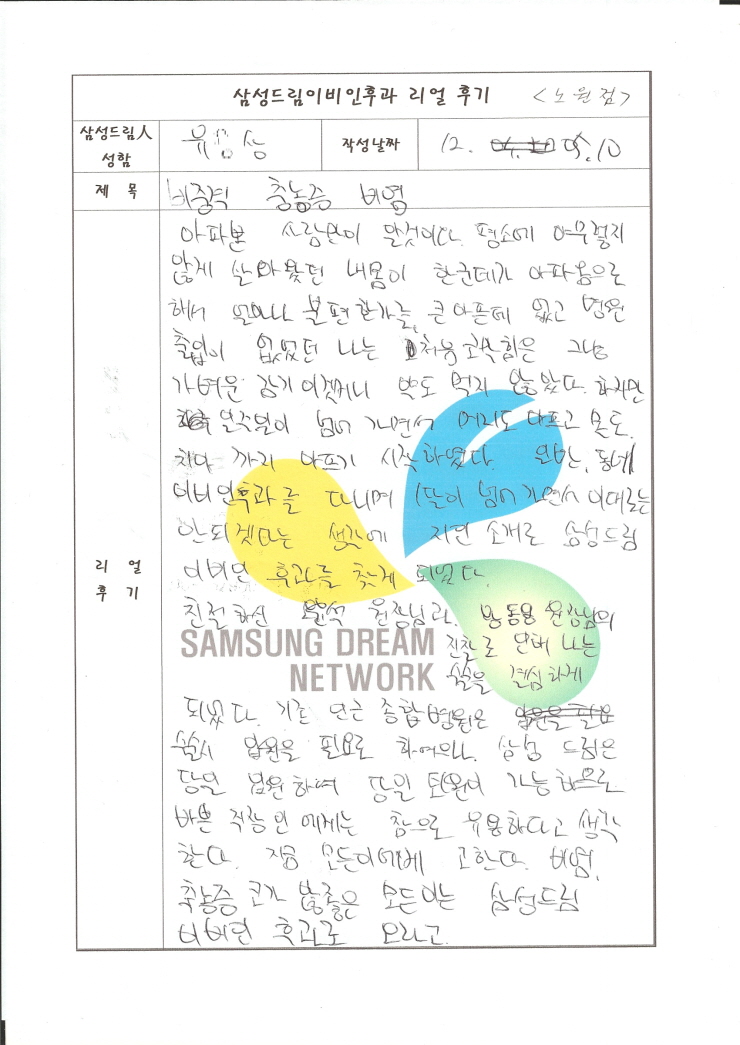 삼성드림이비인후과 리얼 후기 <노원점>
삼성드림人
성함
작성날짜
12. 05.10
제 목
비중격 축농증 비염
아파본 사람만이 알것이다. 평소에 아무렇지
않게 살아왔던 내몸이 한군데가 아파옴으로
해서 얼마나 불편한가를, 큰아픈데 없고 병원
출입이 없었던 나는 처음 코막힘은 그냥
가벼운 감기이겠거니 약도 먹지 않았다. 하지만
일주일이 넘어 가면서 머리도 아프고
까지 아프기 시작하였다. 동네
이비인후과를 다니며 1달이 넘어가면서 이대로는
안되겠다는 생각에 지인 소개로 삼성드림
이비인 후과를 찾게 되었다.
친절하신 원장님과, 원장님의
SAMSUNG DREAM
NETWORK
진찰로 인해 나는
수술을 결심하게
되었다. 기존 인근 종합병원은
수술시 입원을 필요로 하여으나, 삼성 드림은
당일 입원하며 당일 퇴원이 가능하므로
바쁜 직장인에게는 참으로 유용하다고 생각
한다. 지금 모든이에게 고한다. 비염,
축농증 코가 않좋은 모든이는 삼성드림
이비인 후과로 오라고.
리 얼
후 기